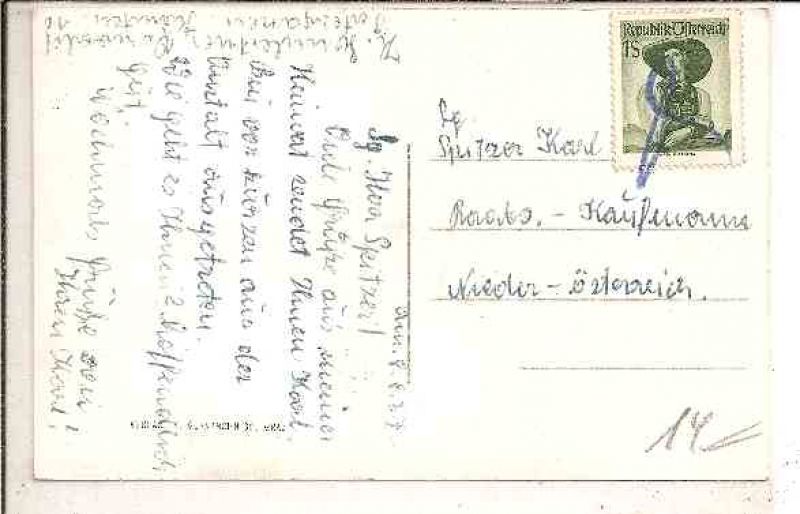 Sg. Herr Spitzer!
Viele Grüße aus meiner
Heimat sendet Ihnen Karl.
Bin vor kurzen aus der
Anstalt ausgetreten.
Wie geht es Ihnen? Hoffendlich
gut.
Nochmals Grüße von
Ihren Karl.
Republik Österreich
1S
Sg.
Spitzer Karl
Raabs. - Kaufmann
Nieder-Österreich.
14